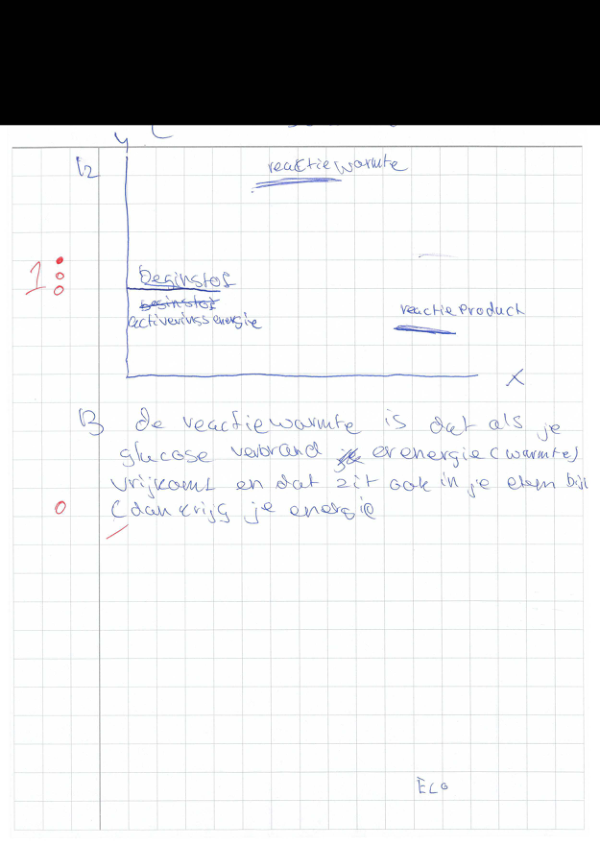 y
12
reactiewarmte
1
beginstof
beginstof
activeringsenergie
reactieproduct
x
B de reactiewarmte is dat als je
glucose verbrand er energie (warmte)
vrijkomt en dat zit ook in je eten bijv
(dan krijg je energie